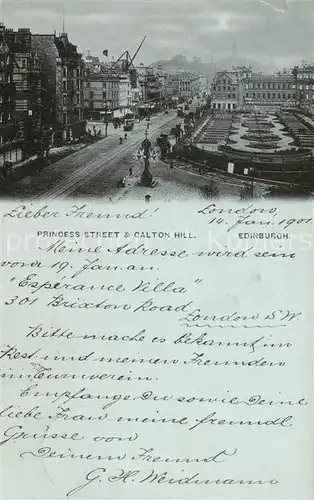 Lieber Freund!
London,
14. Jan. 1901
PRINCESS STREET & CALTON HILL. EDINBURGH.
Meine Adresse wird sein
vom 19. Jan. an.
"Esperance Villa"
301 Brixton Road
London S.W.
Bitte mache es bekannt im
Rest. und meinen Freunden
im Turnverein.
Empfange Du sowie Deine
liebe Frau meine freundl
Grüsse von
Deinem Freund
G. H. Weidmann